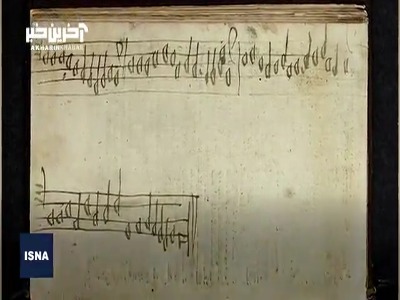 آخرین خبر
AKHARINKHABAR
ISNA